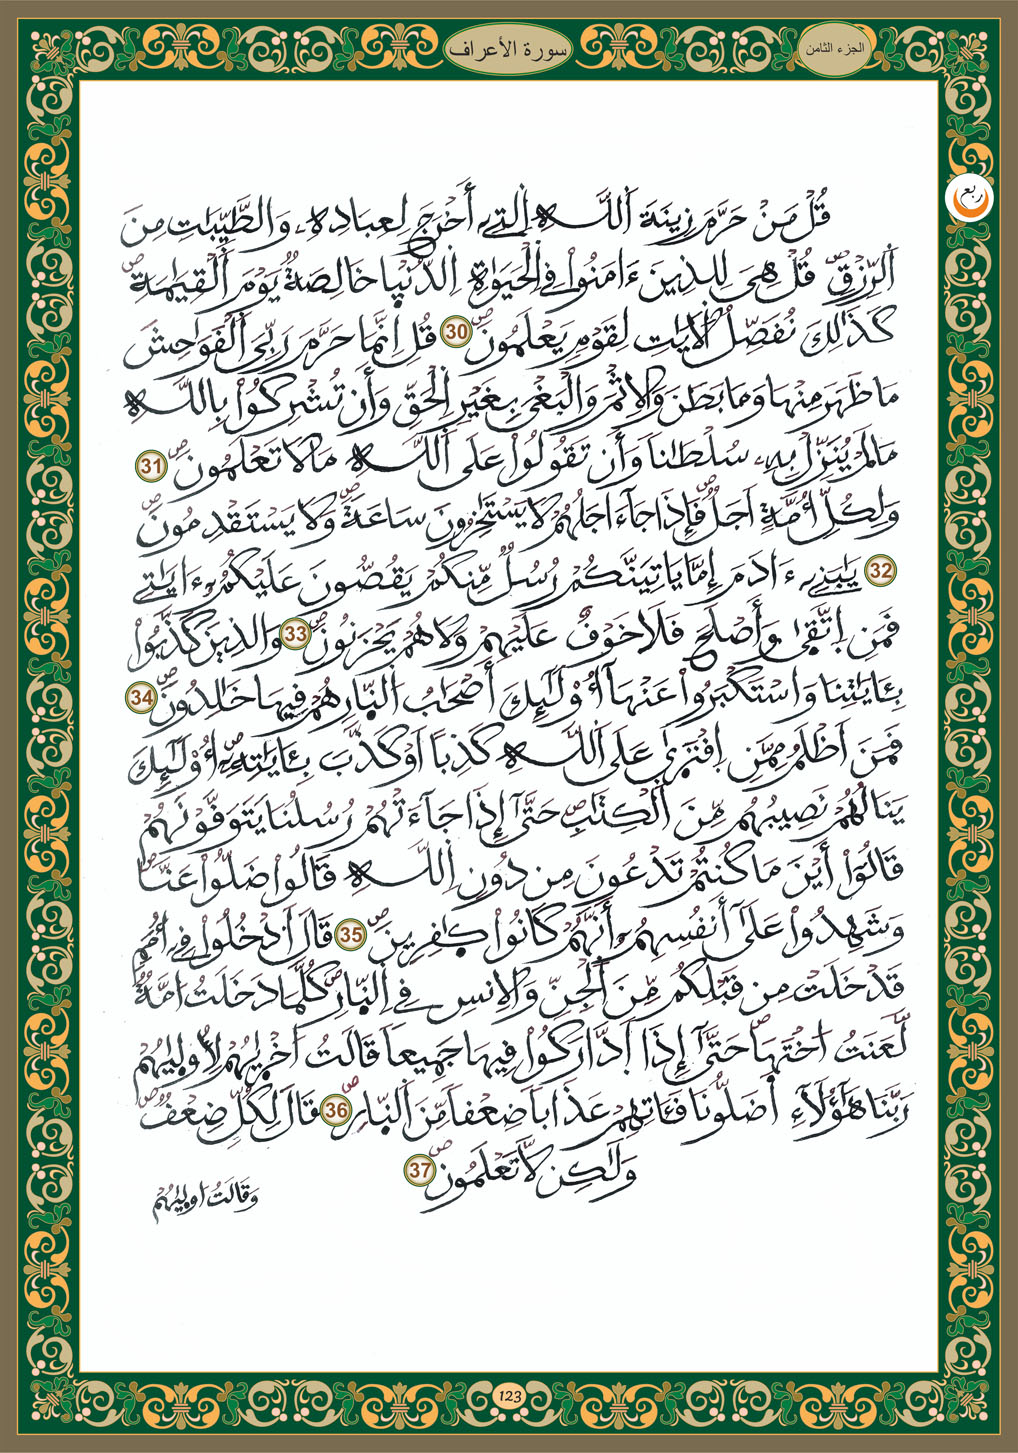 الجزء الثامن
سورة الأعراف
ربع
قُلْ مَنْ حَرَّمَ زِينَةَ اَ۬للَّهِ اِ۬لتِےٓ أَخْرَجَ لِعِبَادِهِۦ وَالطَّيِّبَٰتِ مِنَ
اَ۬لرِّزْقِۖ قُلْ هِيَ لِلذِينَ ءَامَنُواْ فِے اِ۬لْحَيَوٰةِ اِ۬لدُّنْيَا خَالِصَةٞ يَوْمَ اَ۬لْقِيَٰمَةِۖ
كَذَٰلِكَ نُفَصِّلُ اُ۬لْأيَٰتِ لِقَوْمٖ يَعْلَمُونَۖ 30 قُلِ اِنَّمَا حَرَّمَ رَبِّيَ اَ۬لْفَوَٰحِشَ
مَا ظَهَرَ مِنْهَا وَمَا بَطَنَ وَالِاثْمَ وَالْبَغْيَ بِغَيْرِ اِ۬لْحَقِّ وَأَن تُشْرِكُواْ بِاللَّهِ
مَا لَمْ يُنَزِّلْ بِهِۦ سُلْطَٰناٗ وَأَن تَقُولُواْ عَلَى اَ۬للَّهِ مَا لَا تَعْلَمُونَۖ 31
وَلِكُلِّ أُمَّةٍ اَجَلٞۖ فَإِذَا جَآءَ اجَلُهُمْ لَا يَسْتَٰخِرُونَ سَاعَةٗۖ وَلَا يَسْتَقْدِمُونَۖ
32 يَٰبَنِےٓ ءَادَمَ إِمَّا يَاتِيَنَّكُمْ رُسُلٞ مِّنكُمْ يَقُصُّونَ عَلَيْكُمُۥٓ ءَايَٰتِے
فَمَنِ اِ۪تَّق۪يٰ وَأَصْلَحَ فَلَا خَوْفٌ عَلَيْهِمْ وَلَا هُمْ يَحْزَنُونَۖ 33 وَالذِينَ كَذَّبُواْ
بِـَٔايَٰتِنَا وَاسْتَكْبَرُواْ عَنْهَآ أُوْلَٰٓئِكَ أَصْحَٰبُ اُ۬لنّ۪ارِ هُمْ فِيهَا خَٰلِدُونَۖ 34
فَمَنَ اَظْلَمُ مِمَّنِ اِ۪فْتَر۪يٰ عَلَى اَ۬للَّهِ كَذِباً اَوْ كَذَّبَ بِـَٔايَٰتِهِۦٓۖ أُوْلَٰٓئِكَ
يَنَالُهُمْ نَصِيبُهُم مِّنَ اَ۬لْكِتَٰبِۖ حَتَّيٰٓ إِذَا جَآءَتْهُمْ رُسُلُنَا يَتَوَفَّوْنَهُمْ
قَالُوٓاْ أَيْنَ مَا كُنتُمْ تَدْعُونَ مِن دُونِ اِ۬للَّهِ قَالُواْ ضَلُّواْ عَنَّاۖ
وَشَهِدُواْ عَلَيٰٓ أَنفُسِهِمُۥٓ أَنَّهُمْ كَانُواْ كٰ۪فِرِينَۖ 35 قَالَ اَ۟دْخُلُواْ فِےٓ أُمَمٖ
قَدْ خَلَتْ مِن قَبْلِكُم مِّنَ اَ۬لْجِنِّ وَالِانسِ فِے اِ۬لنّ۪ارِۖ كُلَّمَا دَخَلَتُ ا۟مَّةٞ
لَّعَنَتُ ا۟خْتَهَاۖ حَتَّيٰٓ إِذَا اَ۪دَّارَكُواْ فِيهَا جَمِيعاٗ قَالَتُ ا۟خْر۪يٰهُمْ لِأُول۪يٰهُمْ
رَبَّنَا هَٰٓؤُلَآءِ اَ۬ضَلُّونَا فَـَٔاتِهِمْ عَذَاباٗ ضِعْفاٗ مِّنَ اَ۬لنّ۪ارِۖ 36 قَالَ لِكُلّٖ ضِعْفٞۖ
وَلَٰكِن لَّا تَعْلَمُونَۖ 37
وَقَالَتُ اوليهُمْ
123